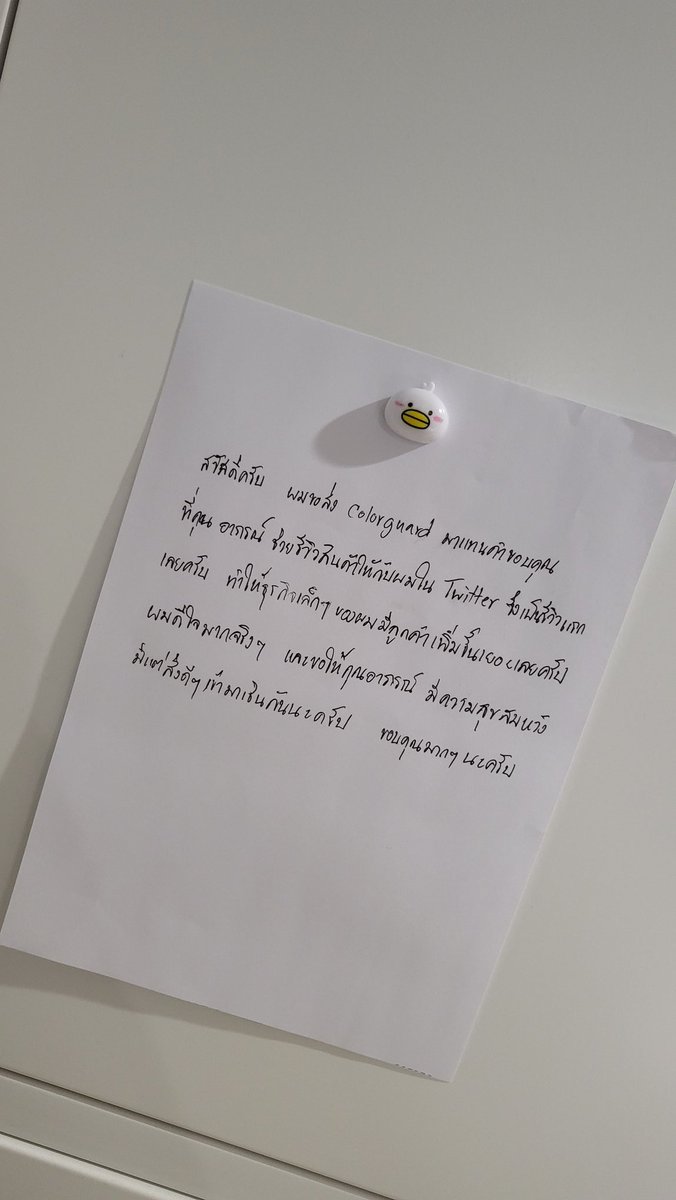 สวัสดีครับ ผมขอส่ง Colorguard มาแทนคำขอบคุณ
ที่คุณ อาภรณ์ ช่วยรีวิวสินค้าให้กับผมใน Twitter ซึ่งเป็นรีวิวแรก
เลยครับ ทำให้ธุรกิจเล็กๆ ของผมมีลูกค้าเพิ่มขึ้นเยอะเลยครับ
ผมดีใจมากจริงๆ และขอให้คุณอาภรณ์ มีความสุขสมหวัง
มีแต่สิ่งดีๆ เข้ามาเช่นกันนะครับ ขอบคุณมากๆ นะครับ